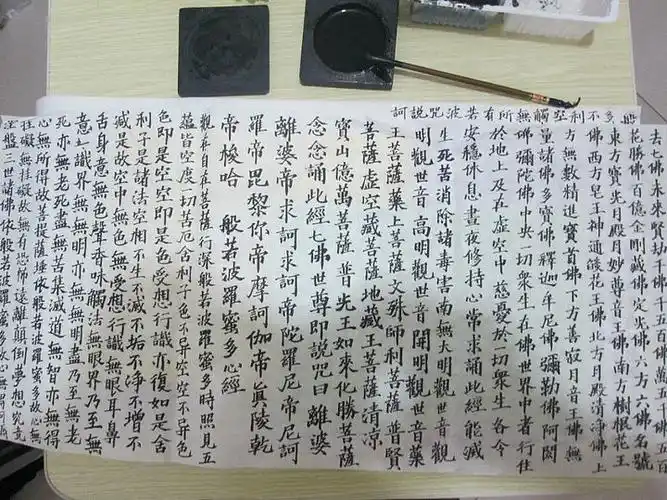 去七佛未來賢劫千佛千五百佛萬五千佛五百
花勝佛百億金剛藏佛定光佛六方六佛名號
東方寶光月殿月妙尊音王佛南方樹根花王
佛西方皂王神通燄花王佛北方月殿清淨佛上
方無數精進寶首佛下方善寂月音王佛無
量諸佛多寶佛釋迦牟尼佛彌勒佛阿閦
佛彌陀佛中央一切眾生在佛世界中者行住
於地上及在虛空中慈憂於一切眾生各令
安穩休息晝夜修持心常求誦此經能滅
生死苦消除諸毒害南無大明觀世音觀
明觀世音高明觀世音開明觀世音藥
王菩薩藥上菩薩文殊師利菩薩普賢
菩薩虛空藏菩薩地藏王菩薩清涼
寶山億萬菩薩普光王如來化勝菩薩
念念誦此經七佛世尊即說咒曰離婆
離婆帝求訶求訶帝陀羅尼帝尼訶
羅帝毘黎你帝摩訶伽帝真陵乾
帝梭哈 般若波羅蜜多心經
觀自在菩薩行深般若波羅蜜多時照見五
蘊皆空度一切苦厄舍利子色不异空空不异色
色即是空空即是色受想行識亦復如是舍
利子是諸法空相不生不滅不垢不淨不增不
減是故空中無色無受想行識無眼耳鼻
舌身意無色聲香味觸法無眼界乃至無
意識界無無明亦無無明盡乃至無老
死亦無老死盡無苦集滅道無智亦無得
無所得故菩提薩埵依般若波羅蜜多故心無
罣礙無罣礙故無有恐怖遠離顛倒夢想究竟
涅槃三世諸佛依般若波羅蜜多故